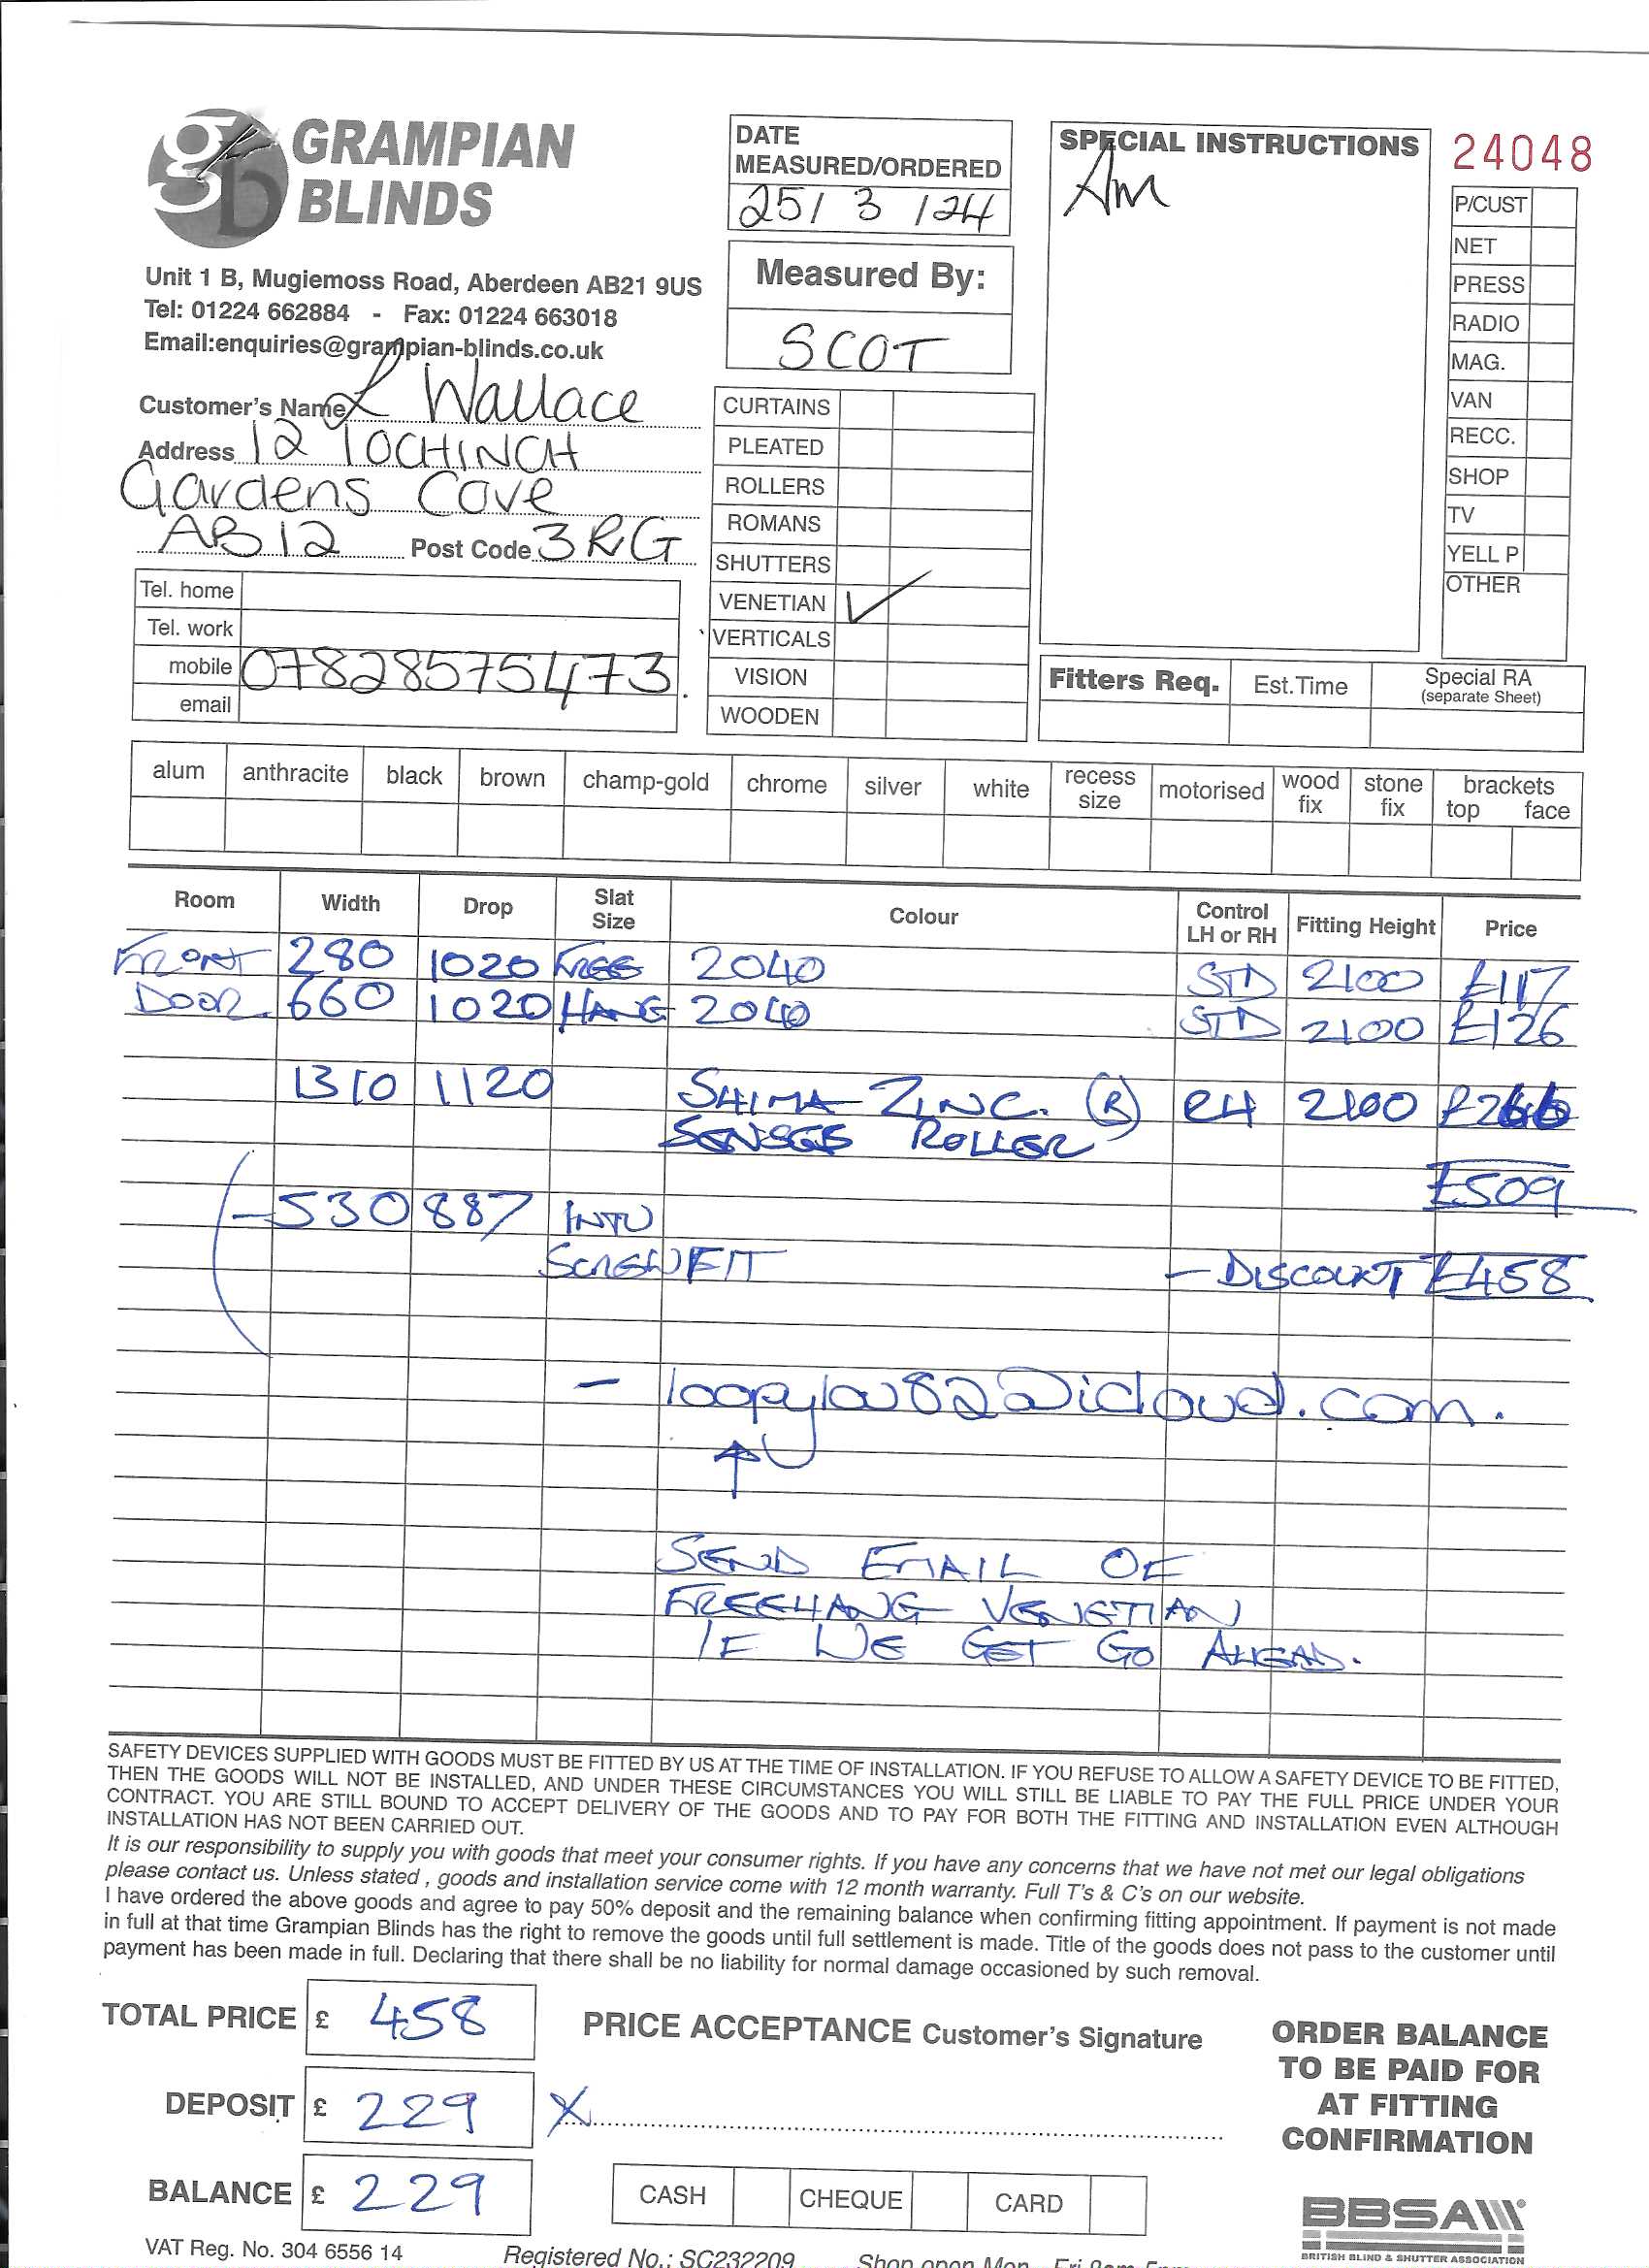 GRAMPIAN
BLINDS
Unit 1 B, Mugiemoss Road, Aberdeen AB21 9US
Tel: 01224 662884 - Fax: 01224 663018
Email:enquiries@grampian-blinds.co.uk
Customer's Name L Wallace
Address 12 LOCHINCH
Gardens Cove
AB12 Post Code 3RG
Tel. home
Tel. work
mobile 07828575473.
email
DATE
MEASURED/ORDERED
25/ 3 /24
Measured By:
SCOT
CURTAINS
PLEATED
ROLLERS
ROMANS
SHUTTERS
VENETIAN ✓
VERTICALS
VISION
WOODEN
SPECIAL INSTRUCTIONS
Am
24048
P/CUST
NET
PRESS
RADIO
MAG.
VAN
RECC.
SHOP
TV
YELL P
OTHER
Fitters Req. Est.Time Special RA
(separate Sheet)
alum anthracite black brown champ-gold chrome silver white recess size motorised wood fix stone fix brackets top face
Room Width Drop Slat Size Colour Control LH or RH Fitting Height Price
FRONT 280 1020 FREE 2040 STD 2100 £117
DOOR. 660 1020 HANG 2040 STD 2100 £126
1310 1120 SHIMA ZINC. (R) RH 2100 £266
SENSES ROLLER
£509
-530 887 INTU
SCREWFIT - DISCOUNT £458
- loopylou82@icloud.com.
↑
SEND EMAIL OF
FREEHANG VENETIAN
IF WE GET GO AHEAD.
SAFETY DEVICES SUPPLIED WITH GOODS MUST BE FITTED BY US AT THE TIME OF INSTALLATION. IF YOU REFUSE TO ALLOW A SAFETY DEVICE TO BE FITTED,
THEN THE GOODS WILL NOT BE INSTALLED, AND UNDER THESE CIRCUMSTANCES YOU WILL STILL BE LIABLE TO PAY THE FULL PRICE UNDER YOUR
CONTRACT. YOU ARE STILL BOUND TO ACCEPT DELIVERY OF THE GOODS AND TO PAY FOR BOTH THE FITTING AND INSTALLATION EVEN ALTHOUGH
INSTALLATION HAS NOT BEEN CARRIED OUT.
It is our responsibility to supply you with goods that meet your consumer rights. If you have any concerns that we have not met our legal obligations
please contact us. Unless stated , goods and installation service come with 12 month warranty. Full T's & C's on our website.
I have ordered the above goods and agree to pay 50% deposit and the remaining balance when confirming fitting appointment. If payment is not made
in full at that time Grampian Blinds has the right to remove the goods until full settlement is made. Title of the goods does not pass to the customer until
payment has been made in full. Declaring that there shall be no liability for normal damage occasioned by such removal.
TOTAL PRICE £ 458
DEPOSIT £ 229
BALANCE £ 229
PRICE ACCEPTANCE Customer's Signature
X
CASH CHEQUE CARD
ORDER BALANCE
TO BE PAID FOR
AT FITTING
CONFIRMATION
BBSA
BRITISH BLIND & SHUTTER ASSOCIATION
VAT Reg. No. 304 6556 14
Registered No.: SC232209
Shop open Mon - Fri 9am-5pm